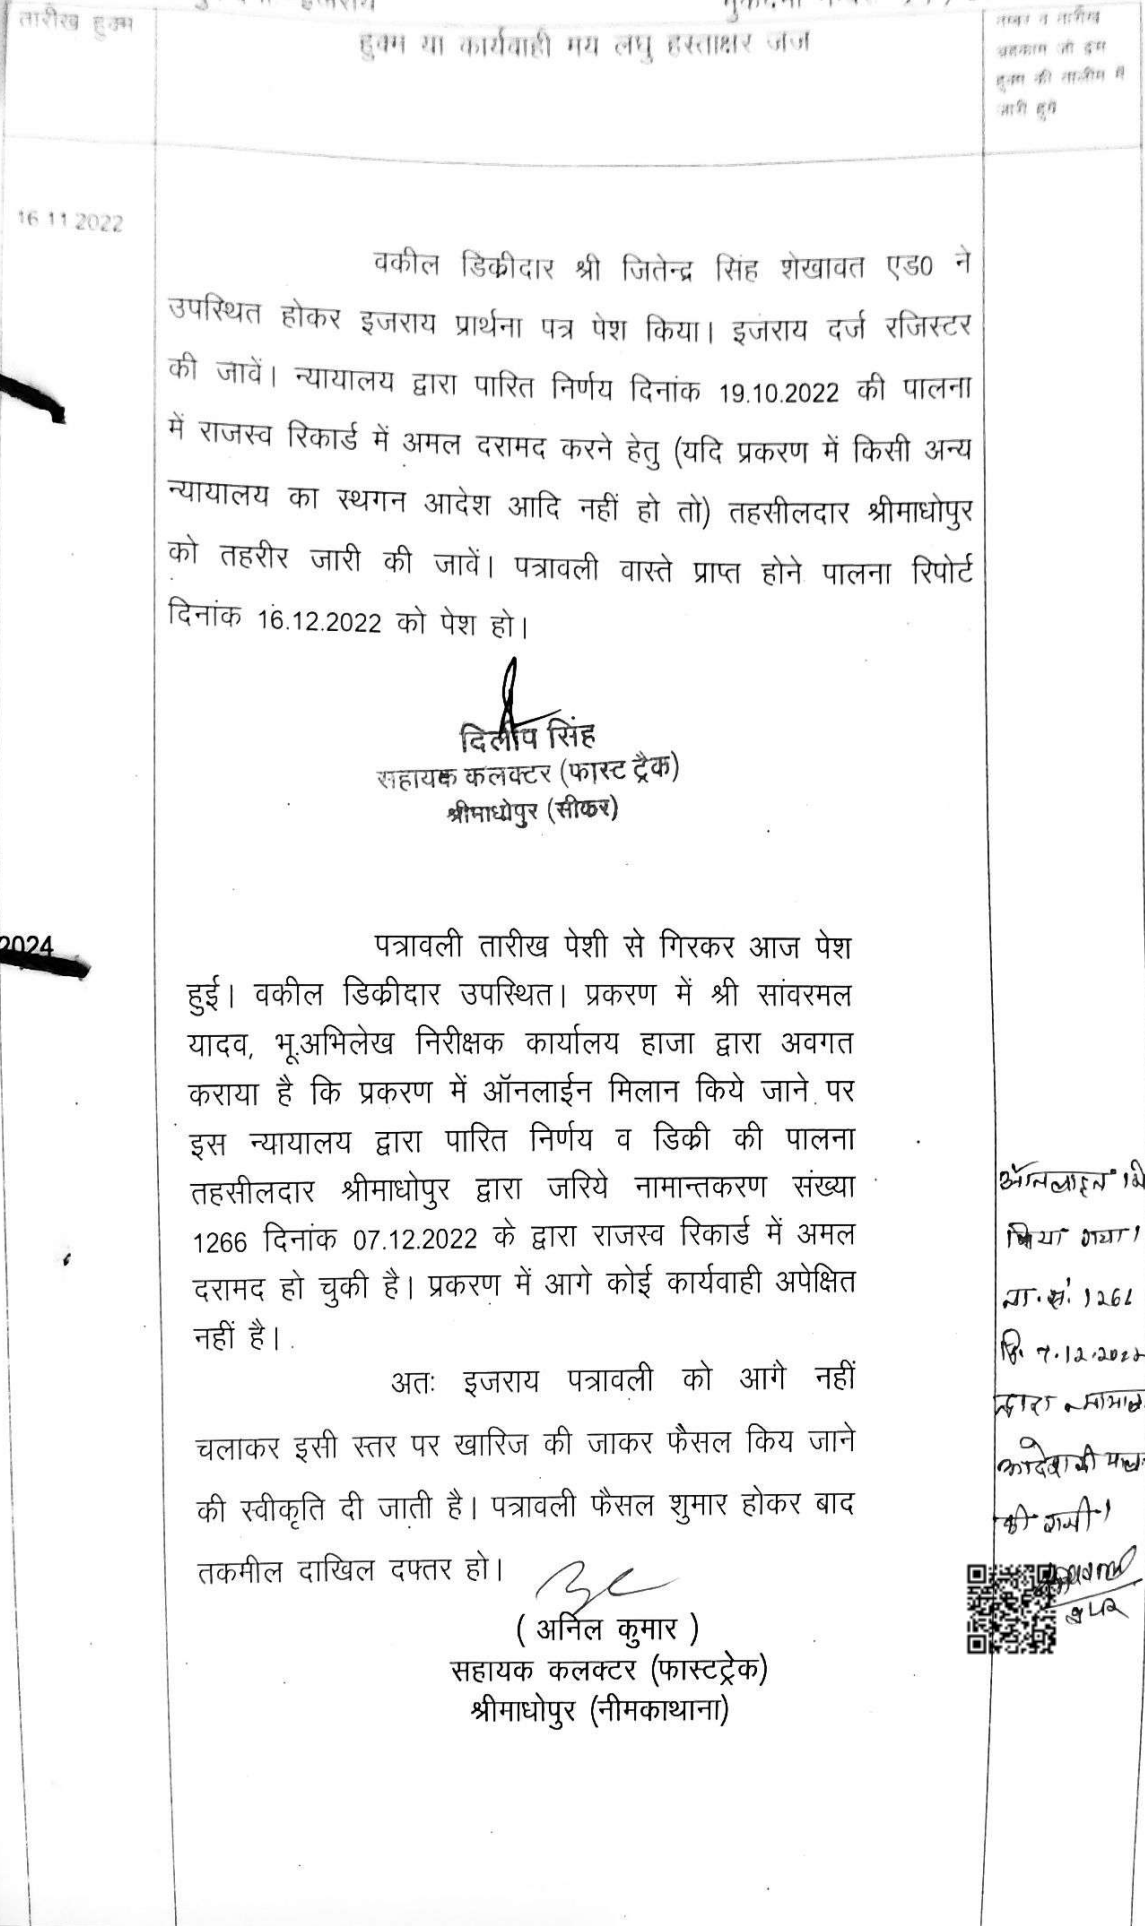 तारीख हुक्म
हुक्म या कार्यवाही मय लघु हस्ताक्षर जज
नम्बर व तारीख
अहकाम जो इस
हुक्म की तालीम में
जारी हुये
16.11.2022
वकील डिक्रीदार श्री जितेन्द्र सिंह शेखावत एड0 ने
उपस्थित होकर इजराय प्रार्थना पत्र पेश किया। इजराय दर्ज रजिस्टर
की जावें। न्यायालय द्वारा पारित निर्णय दिनांक 19.10.2022 की पालना
में राजस्व रिकार्ड में अमल दरामद करने हेतु (यदि प्रकरण में किसी अन्य
न्यायालय का स्थगन आदेश आदि नहीं हो तो) तहसीलदार श्रीमाधोपुर
को तहरीर जारी की जावें। पत्रावली वास्ते प्राप्त होने पालना रिपोर्ट
दिनांक 16.12.2022 को पेश हो।
दिलीप सिंह
सहायक कलक्टर (फास्ट ट्रैक)
श्रीमाधोपुर (सीकर)
2024
पत्रावली तारीख पेशी से गिरकर आज पेश
हुई। वकील डिक्रीदार उपस्थित। प्रकरण में श्री सांवरमल
यादव, भू.अभिलेख निरीक्षक कार्यालय हाजा द्वारा अवगत
कराया है कि प्रकरण में ऑनलाईन मिलान किये जाने पर
इस न्यायालय द्वारा पारित निर्णय व डिक्री की पालना
तहसीलदार श्रीमाधोपुर द्वारा जरिये नामान्तकरण संख्या
1266 दिनांक 07.12.2022 के द्वारा राजस्व रिकार्ड में अमल
दरामद हो चुकी है। प्रकरण में आगे कोई कार्यवाही अपेक्षित
नहीं है।
अतः इजराय पत्रावली को आगे नहीं
चलाकर इसी स्तर पर खारिज की जाकर फैसल किय जाने
की स्वीकृति दी जाती है। पत्रावली फैसल शुमार होकर बाद
तकमील दाखिल दफ्तर हो।
( अनिल कुमार )
सहायक कलक्टर (फास्टट्रेक)
श्रीमाधोपुर (नीमकाथाना)
ऑनलाइन
किया गया।
ना.सं. 1266
दि. 7.12.2022
द्वारा
की गयी।